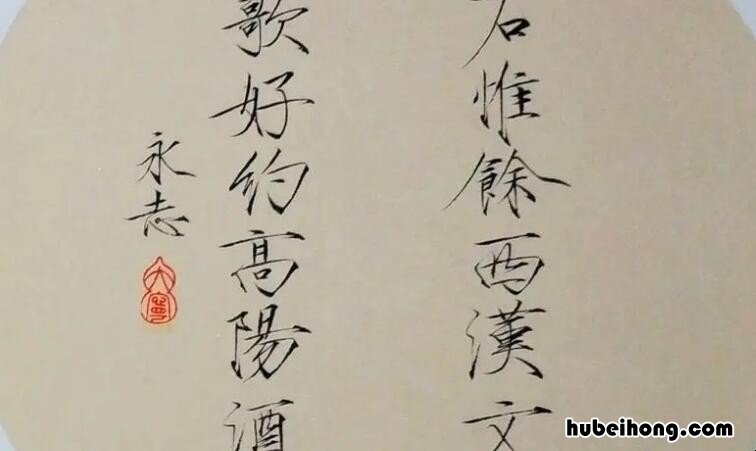 石惟餘西漢文
歌好約高陽酒
永志
大寧
hubeihong.com